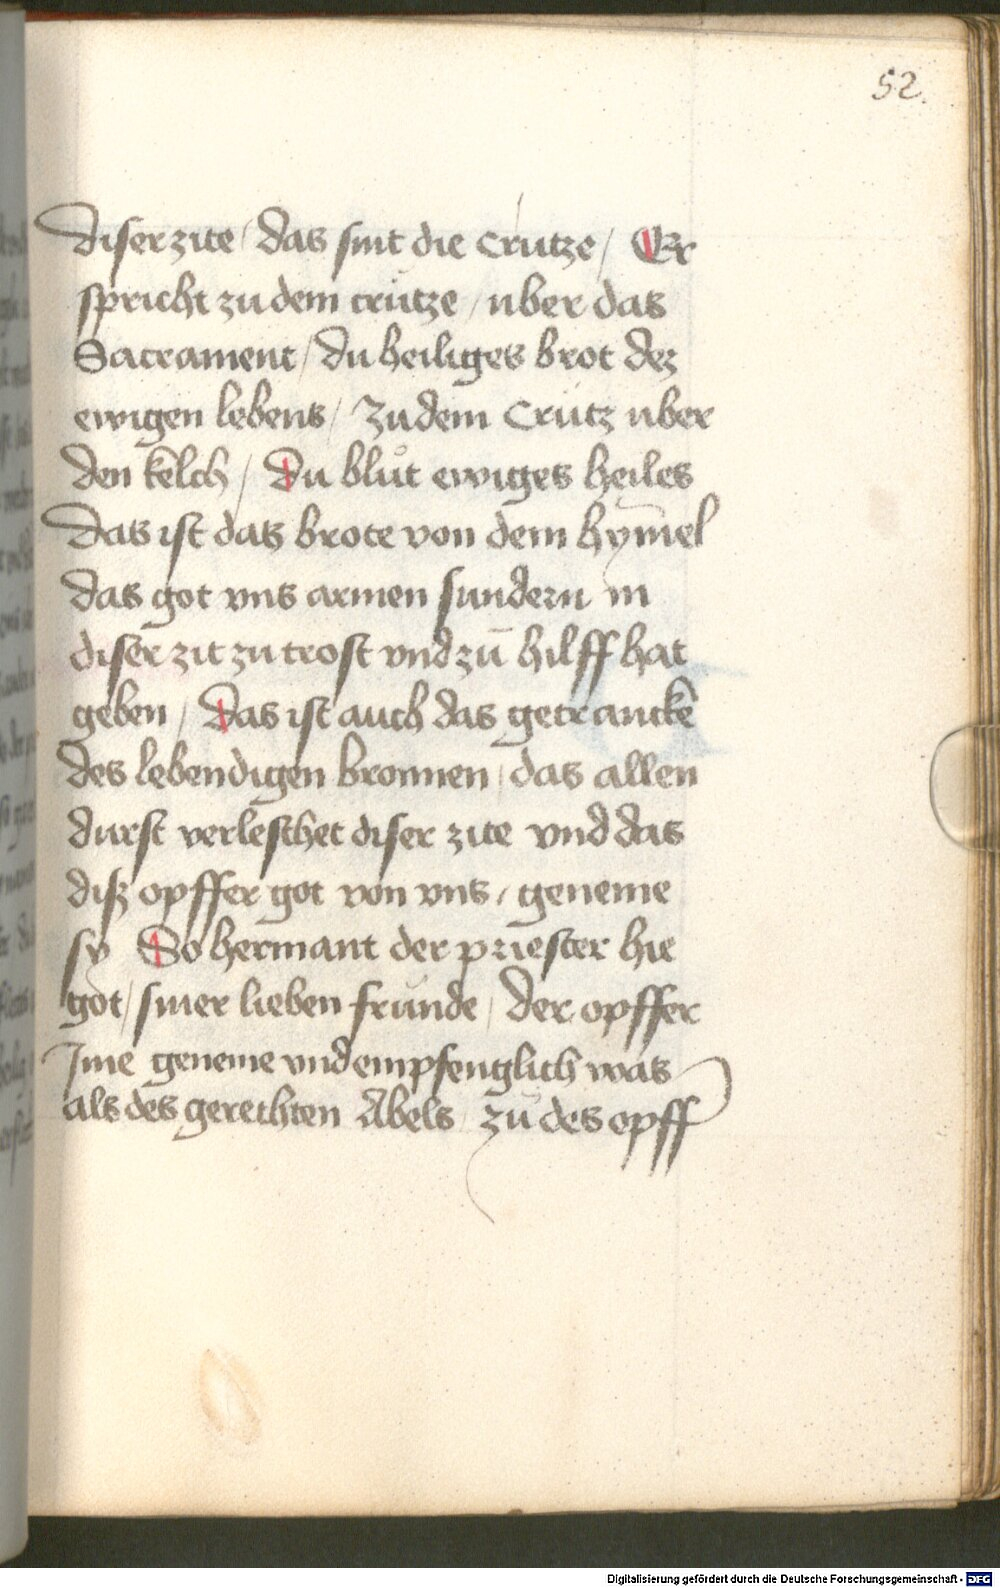 52.
diser zite / das sint die crutze / Er
spricht zu dem crutze / uber das
Sacrament / du heiliges brot dez
ewigen lebens / Zu dem Crutz uber
den kelch / du blůt ewiges heiles
Das ist das brote von dem hym̄el
das got vns armen sundern in
diser zit zu trost vnd zů hilff hat
geben / das ist auch das getrancke
des lebendigen bronnen / das allen
durst verleschet diser zite vnd das
diß opffer got von vns / geneme
sy So hermant der priester hie
got / siner lieben frunde / der opffer
Ime geneme vnd empfenglich was
als des gerechten Abels / zů des opff
Digitalisierung gefördert durch die Deutsche Forschungsgemeinschaft - DFG